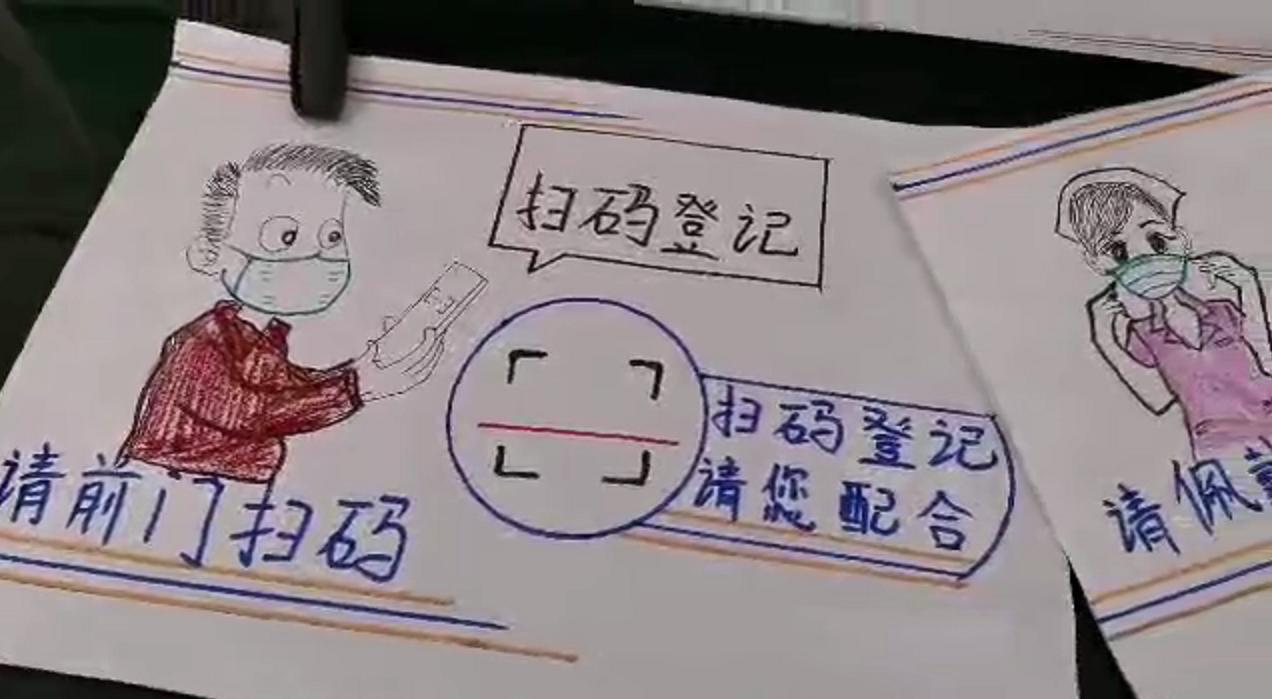 扫码登记
扫码登记
请您配合
请前门扫码
请佩